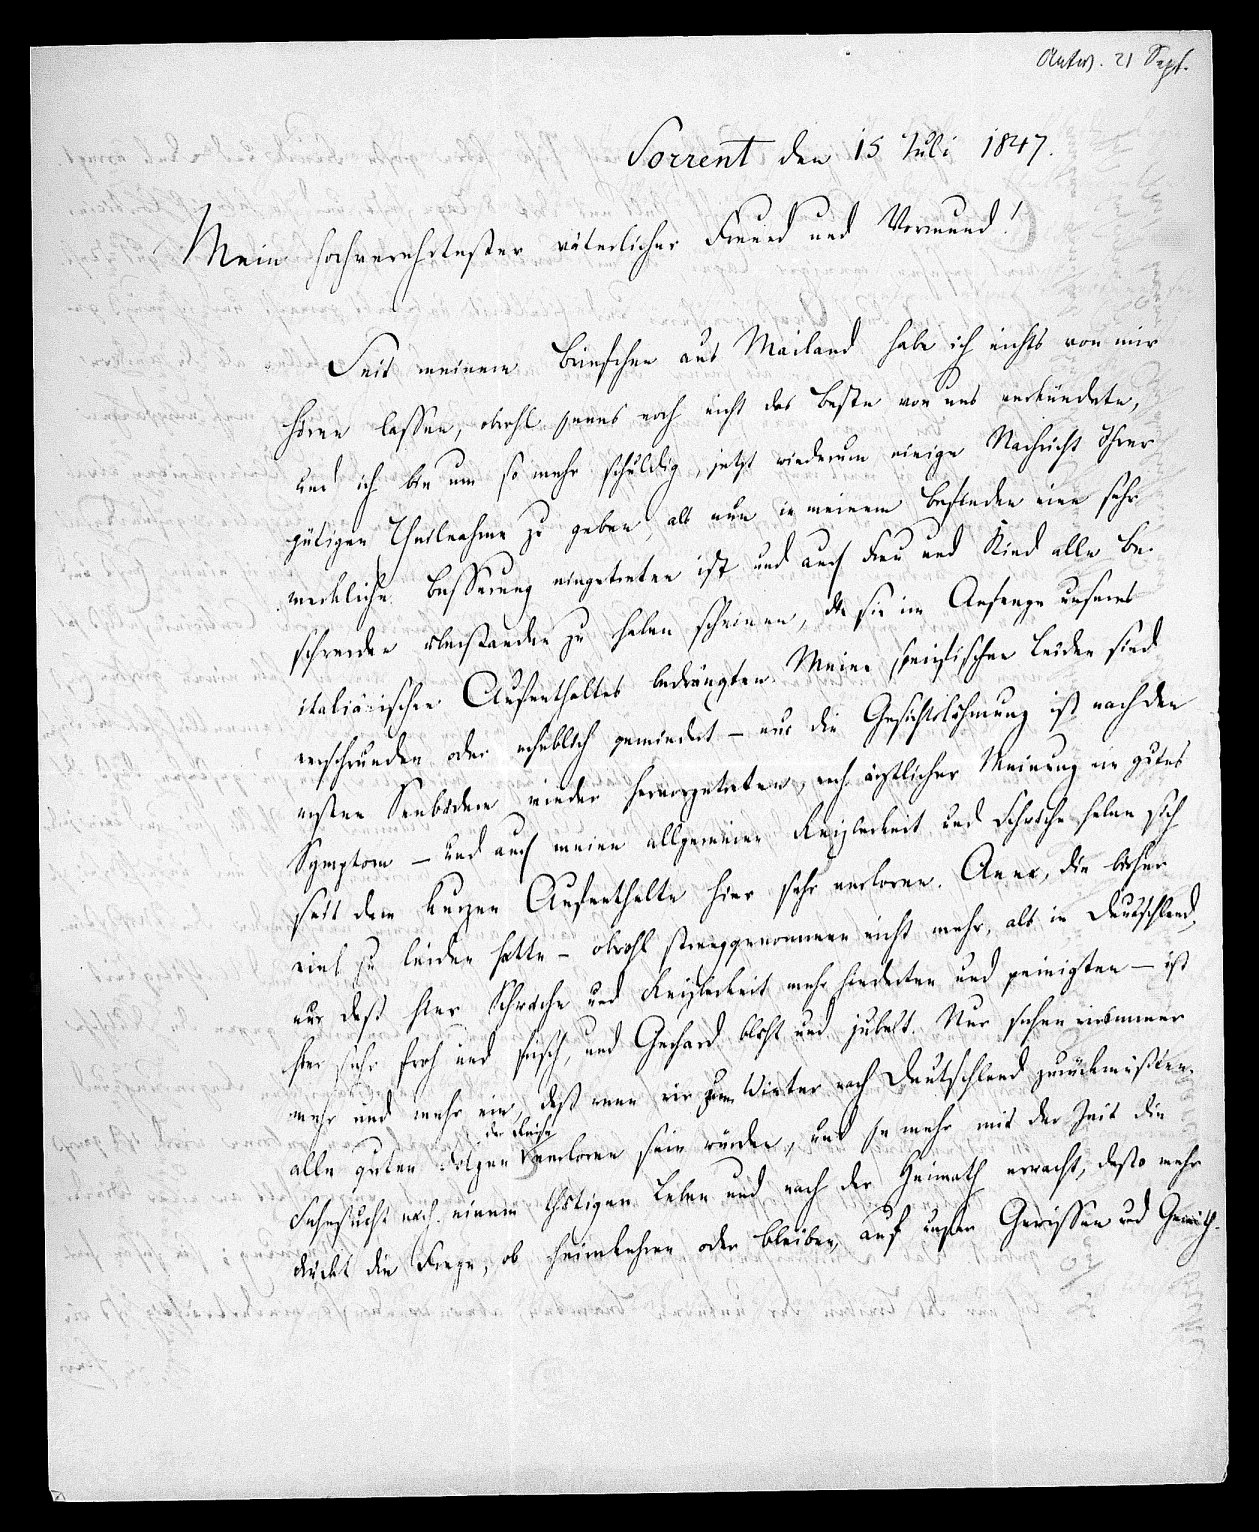 Antw. 21 Sept.
Sorrent den 15 Juli 1847.
Mein hochverehrtester väterlicher Freund und Vormund!
Seit meinem Briefchen aus Mailand habe ich nichts von mir
hören lassen, obwohl jenes noch nicht das Beste von uns verkündete,
und ich bin um so mehr schuldig, jetzt wiederum einige Nachricht Ihrer
gütigen Theilnahme zu geben, als nun in meinem Befinden eine sehr
merkliche Besserung eingetreten ist und auch Frau und Kind alle Be-
schwerden überstanden zu haben scheinen, die sie im Anfange unseres
italiänischen Aufenthaltes bedrängten. Meine spezifischen Leiden sind
verschwunden oder erheblich gemindert – nur die Gesichtslähmung ist nach den
ersten Seebädern wieder hervorgetreten, nach ärztlicher Meinung ein gutes
Symptom – und auch meine allgemeine Reizbarkeit und Schwäche haben sich
seit dem kurzen Aufenthalte hier sehr verloren. Anna, die bisher
viel zu leiden hatte – obwohl strenggenommen nicht mehr, als in Deutschland,
nur daß hier Schwäche und Reizbarkeit mehr hinderten und peinigten – ist
hier sehr froh und frisch, und Gerhard blüht und jubelt. Nur sehen wir immer
mehr und mehr ein, daß wenn wir zum Winter nach Deutschland zurückmüßten,
alle guten Folgen der Reise verloren sein würden, und je mehr mit der Zeit die
Sehnsucht nach einem thätigen Leben und nach der Heimath erwacht, desto mehr
drückt die Frage, ob heimkehren oder bleiben, auf unser Gewissen und Gemüth.